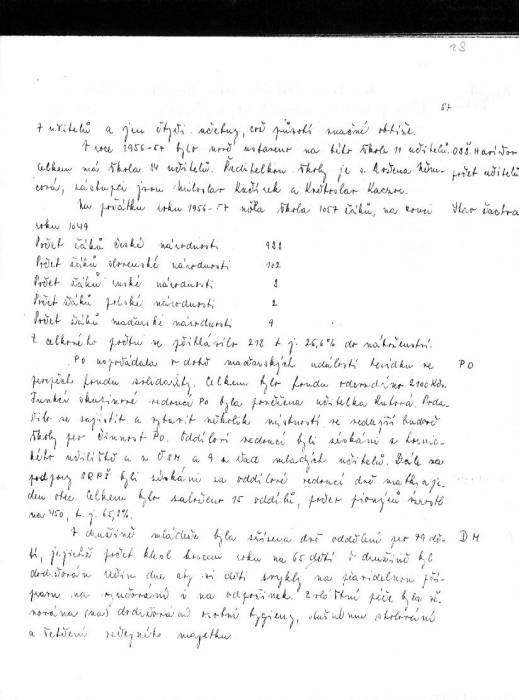 28
87
7 učitelů a jen čtyři učebny, což působí značné obtíže.
V roce 1956-57 bylo nově ustanoveno na této škole 11 učitelů. OSŠ Havířov
Celkem má škola 34 učitelů. Ředitelkou školy je s. Božena počet učitelů
zástupci jsou Miloslav Kudinek a Květoslav
Na počátku roku 1956-57 měla škola 1057 žáků, na konci Stav žactva
roku 1049
Počet žáků české národnosti 922
Počet žáků slovenské národnosti 102
Počet žáků národnosti
Počet žáků polské národnosti 2
Počet žáků maďarské národnosti 9
Z celkového počtu se přihlásilo 212 t. j. 26,6% do náboženství.
PO uspořádala v době maďarských událostí besídku ve PO
prospěch fondu solidarity. Celkem bylo fondu odevzdáno 2100 Kčs.
Funkcí skupinové vedoucí PO byla pověřena učitelka Poda-
řilo se zajistit a vybavit několik místností ve vedlejší budově
školy pro činnost PO. Oddíloví vedoucí byli získáni z hornic-
kého učiliště a z ČSM a 9 z řad mladých učitelů. Dále za
podpory SRPŠ byli získáni za oddílové vedoucí dvě matky a je-
den otec. Celkem bylo založeno 15 oddílů, počet pionýrů vzrostl
na 450, t. j. 65,2%.
V družině mládeže byla zřízena dvě oddělení pro 79 dě- DM
tí, jejichž počet klesl koncem roku na 65 dětí. V družině byl
dodržován režim dne aby si děti zvykly na pravidelnou pří-
pravu na vyučování i na odpočinek. Zvláštní péče byla vě-
nována dodržování osobní hygieny, slušnému stolování
a šetření veřejného majetku.